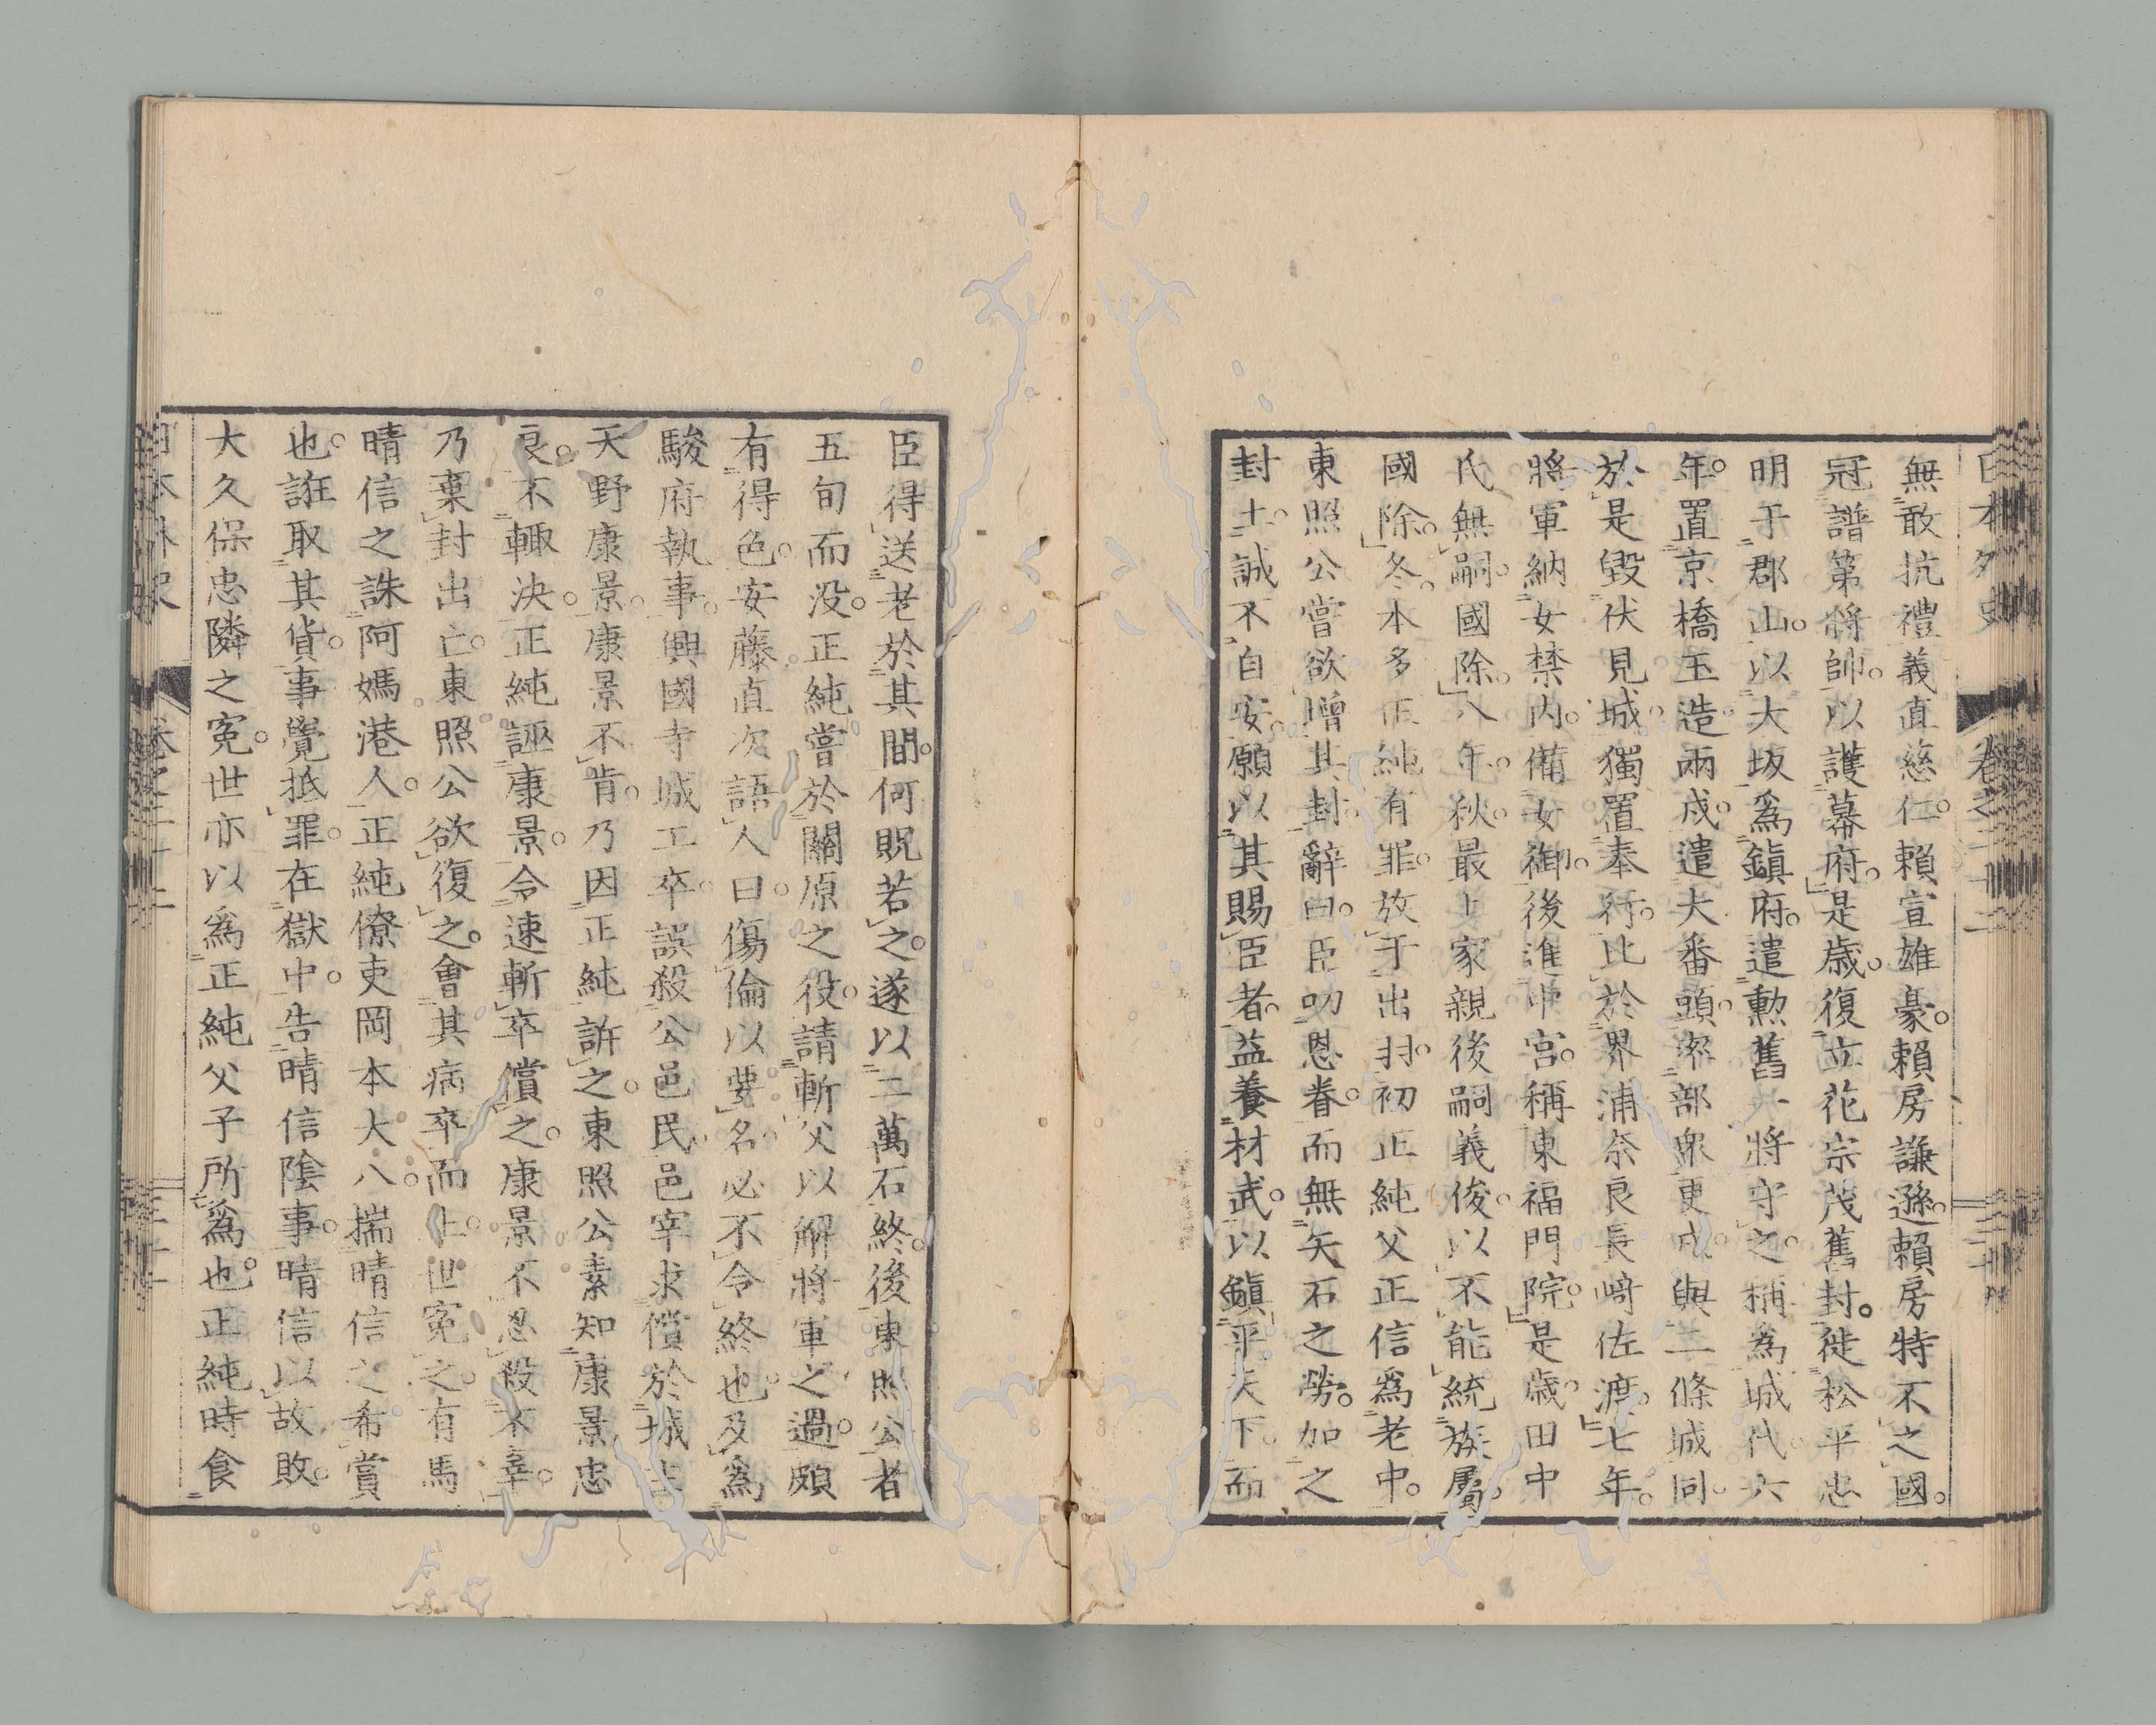 無敢抗禮義直慈仁。賴宣雄豪。賴房謙遜。賴房特不之國。
冠譜第將帥。以護幕府。是歳。復立花宗茂舊封。徙松平忠
明于郡山。以大坂爲鎭府。遣勲舊 將守之。稱爲城代。六
年。置京橋玉造兩戍。遣大番頭。率部衆更戍。與二條城同。
於是毀伏見城。獨置奉行。比於界浦奈良長﨑佐渡。七年。
將軍納女禁内。備女御。後進中宮。稱東福門院。是歳。田中
氏無嗣。國除。八年。秋。最上家親後嗣義俊。以不能統族屬。
國除。冬。本多正純有罪。放于出羽。初正純父正信爲老中。
東照公嘗欲增其封。辭曰。臣叨恩眷。而無矢石之勞。加之
封土。誠不自安。願以其賜臣者。益養材武。以鎭平天下。而
臣得送老於其間。何貺若之。遂以二萬石終。後東照公者
五旬而没。正純嘗於關原之役。請斬父以解將軍之過。頗
有得色。安藤直次語人曰。傷倫以要名。必不令終也。及爲
駿府執事。興國寺城工卒。誤殺公邑民。邑宰求償於城主
天野康景。康景不肯。乃因正純訴之。東照公素知康景忠
良。不輙決。正純誣康景。令速斬卒償之。康景不忍殺不辜。
乃棄封出亡。東照公欲復之。會其病卒而止。世寃之。有馬
晴信之誅阿媽港人。正純僚吏岡本大八。揣晴信之希賞
也。誑取其貨。事覺抵罪。在獄中。告晴信陰事。晴信以故敗。
大久保忠隣之寃。世亦以爲正純父子所爲也。正純時食